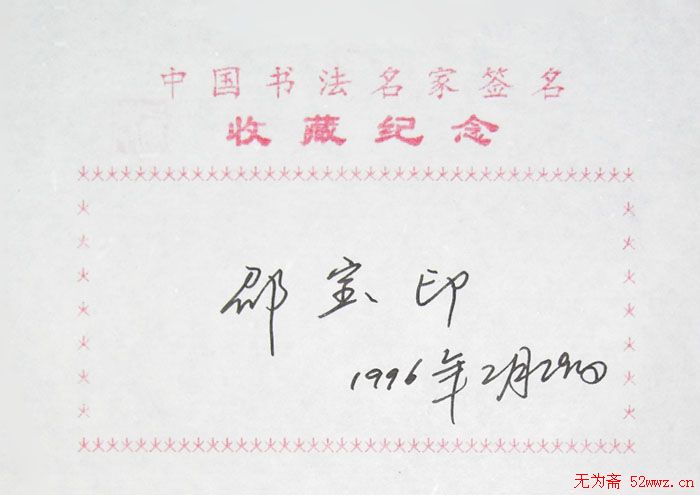 中国书法名家签名
收藏纪念
邵宝印
1996年2月29日
无为斋 52wwz.cn